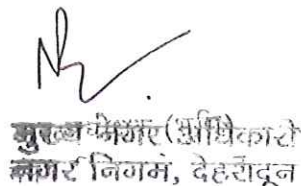 मुख्य नगर अधिकारी
नगर निगम, देहरादून